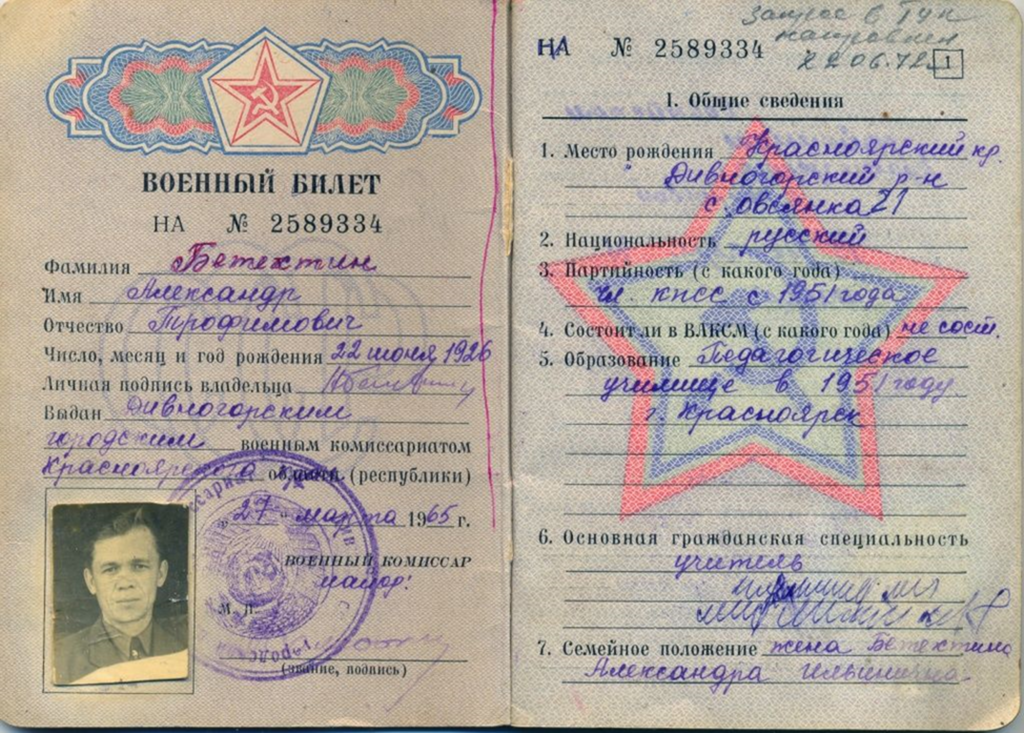 ВОЕННЫЙ БИЛЕТ
НА № 2589334
Фамилия Бетехтин
Имя Александр
Отчество Трофимович
Число, месяц и год рождения 22 июня 1926
Личная подпись владельца
Выдан Дивногорским
городским военным комиссариатом
Красноярского области (республики)
"27" марта 1965 г.
ВОЕННЫЙ КОМИССАР
майор:
М. П.
(звание, подпись)
запрос в
направлен
22.06.72
НА № 2589334
1
I. Общие сведения
1. Место рождения Красноярский кр.
Дивногорский р-н
с. Овсянка 21
2. Национальность русский
3. Партийность (с какого года)
чл. КПСС с 1951 года
4. Состоит ли в ВЛКСМ (с какого года) не сост.
5. Образование Педагогическое
училище в 1951 году
г. Красноярск
6. Основная гражданская специальность
учитель
7. Семейное положение жена Бетехтина
Александра Ильинична